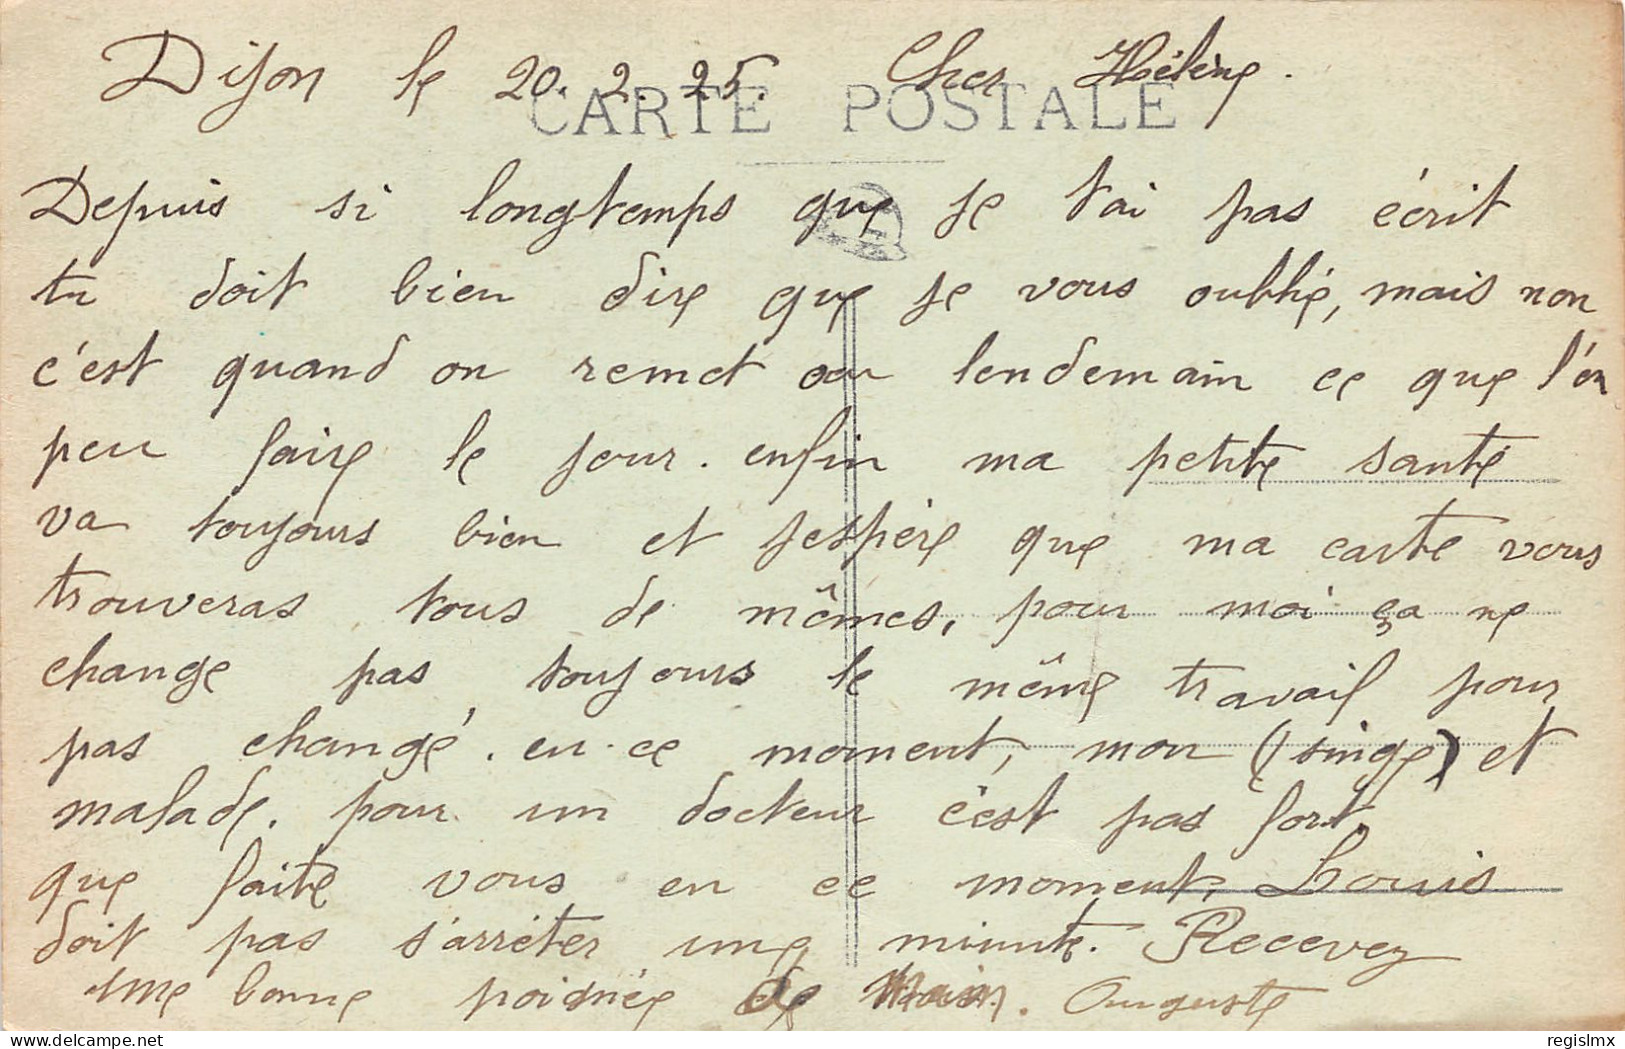 Dijon le 20.2.25. Cher Hélène.
CARTE POSTALE
Depuis si longtemps que je t'ai pas écrit
tu doit bien dire que je vous oublié, mais non
c'est quand on remet au lendemain ce que l'on
peu faire le jour. enfin ma petite santé
va toujours bien et j'espère que ma carte vous
trouveras tous de mêmes, pour moi ça ne
change pas, toujours le même travail pour
pas changé. en ce moment, mon (singe) et
malade. pour un docteur c'est pas fort.
que faite vous en ce moment, Louis
doit pas s'arrêter une minute. Recevez
une bonne poignée de main. Auguste
delcampe.net
regislmx